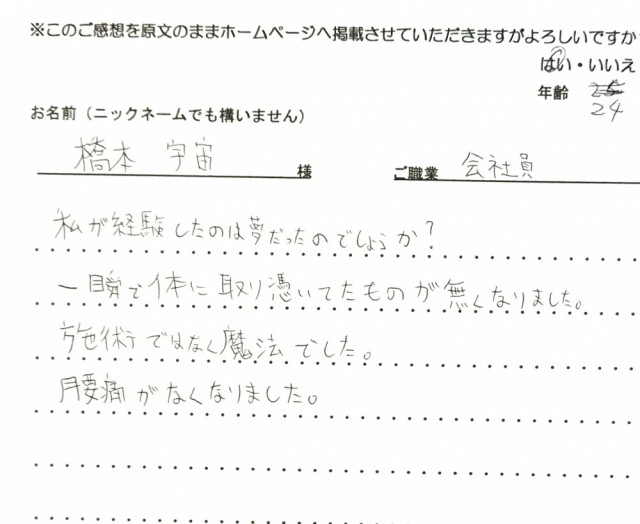 ※このご感想を原文のままホームページへ掲載させていただきますがよろしいですか
はい・いいえ
年齢
24
お名前（ニックネームでも構いません）
橋本 宇宙 様 ご職業 会社員
私が経験したのは夢だったのでしょうか？
一瞬で体に取り憑いてたものが無くなりました。
施術ではなく魔法でした。
腰痛がなくなりました。